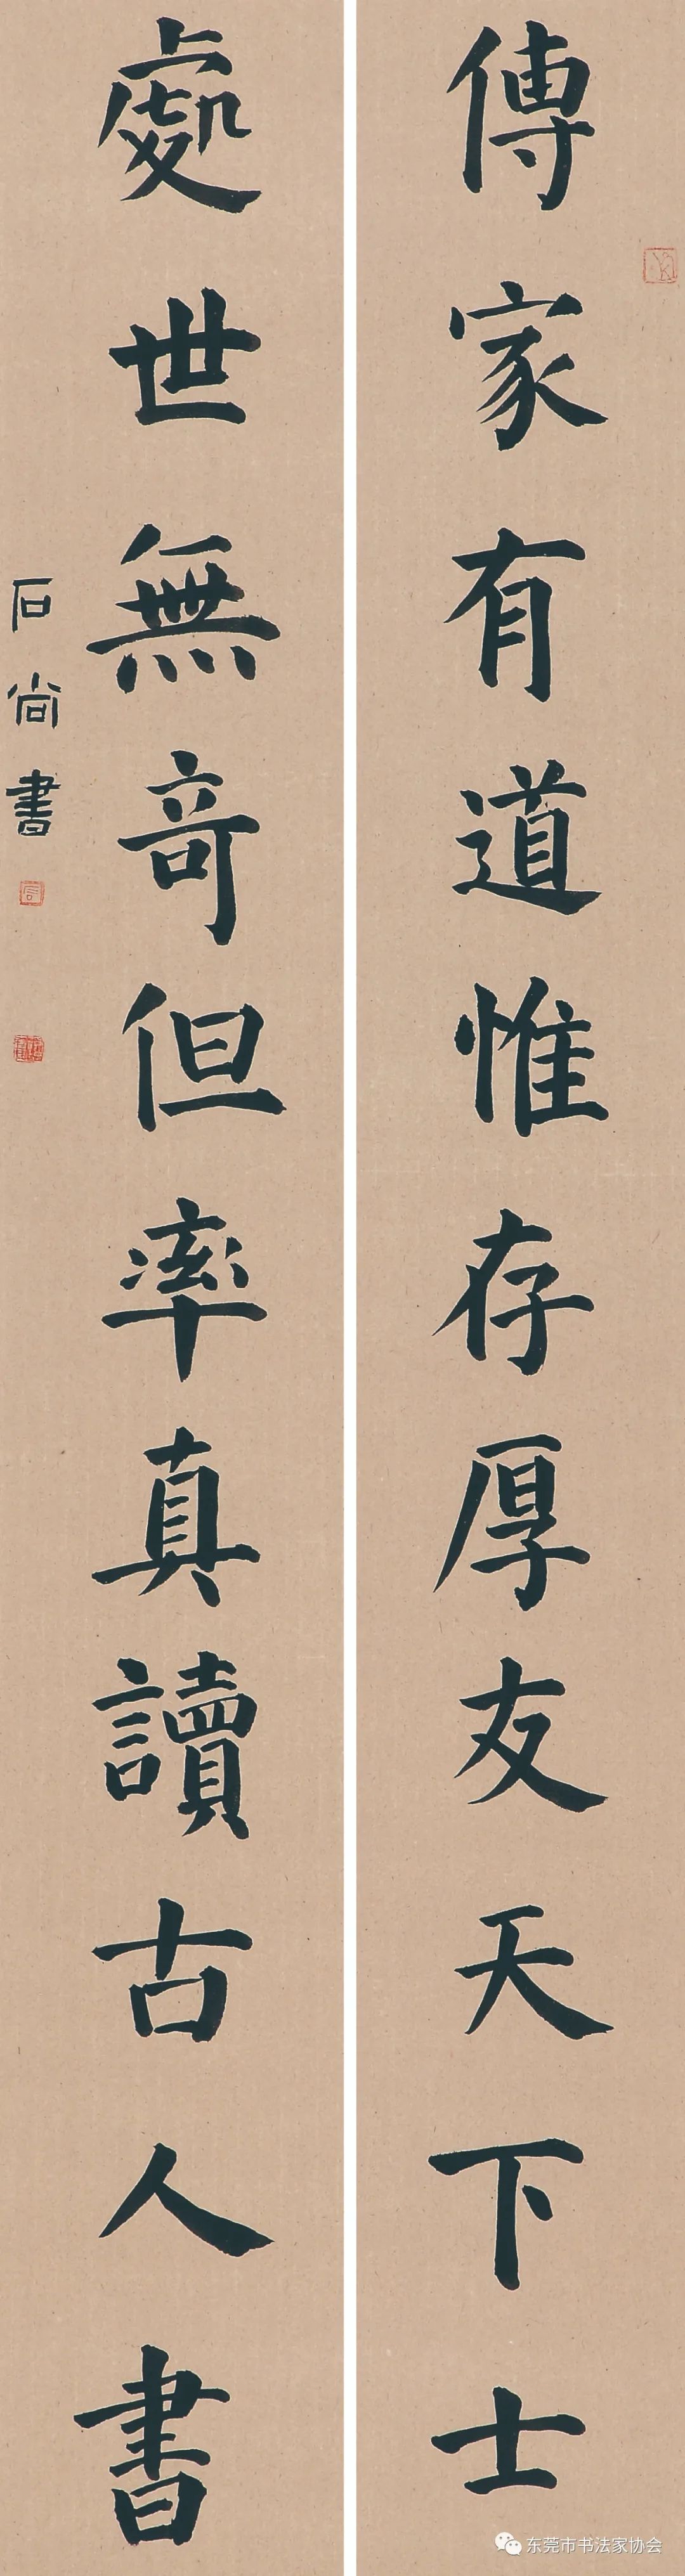 傳家有道惟存厚友天下士
處世無奇但率真讀古人書
石尚書
东莞市书法家协会